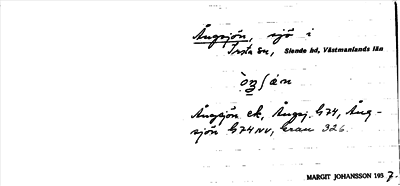 Ängsjön, sjö i
Irsta sn, Siende hd, Västmanlands län
Ängsjön ek, Ängsj. G74, Äng-
sjön G74NV, Grau 326.
MARGIT JOHANSSON 1937.